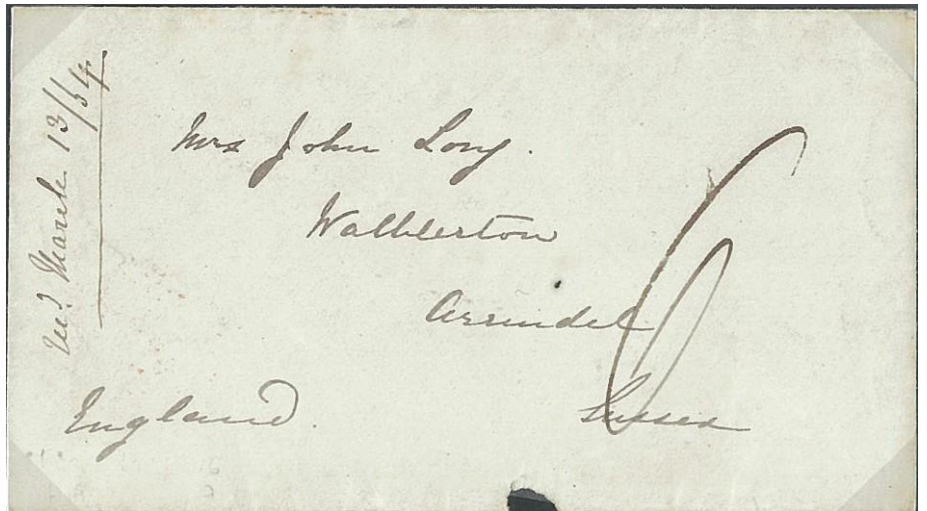 March 13/54
Mrs John Long.
Wallberton
Arrundel
6
Sussex
England.